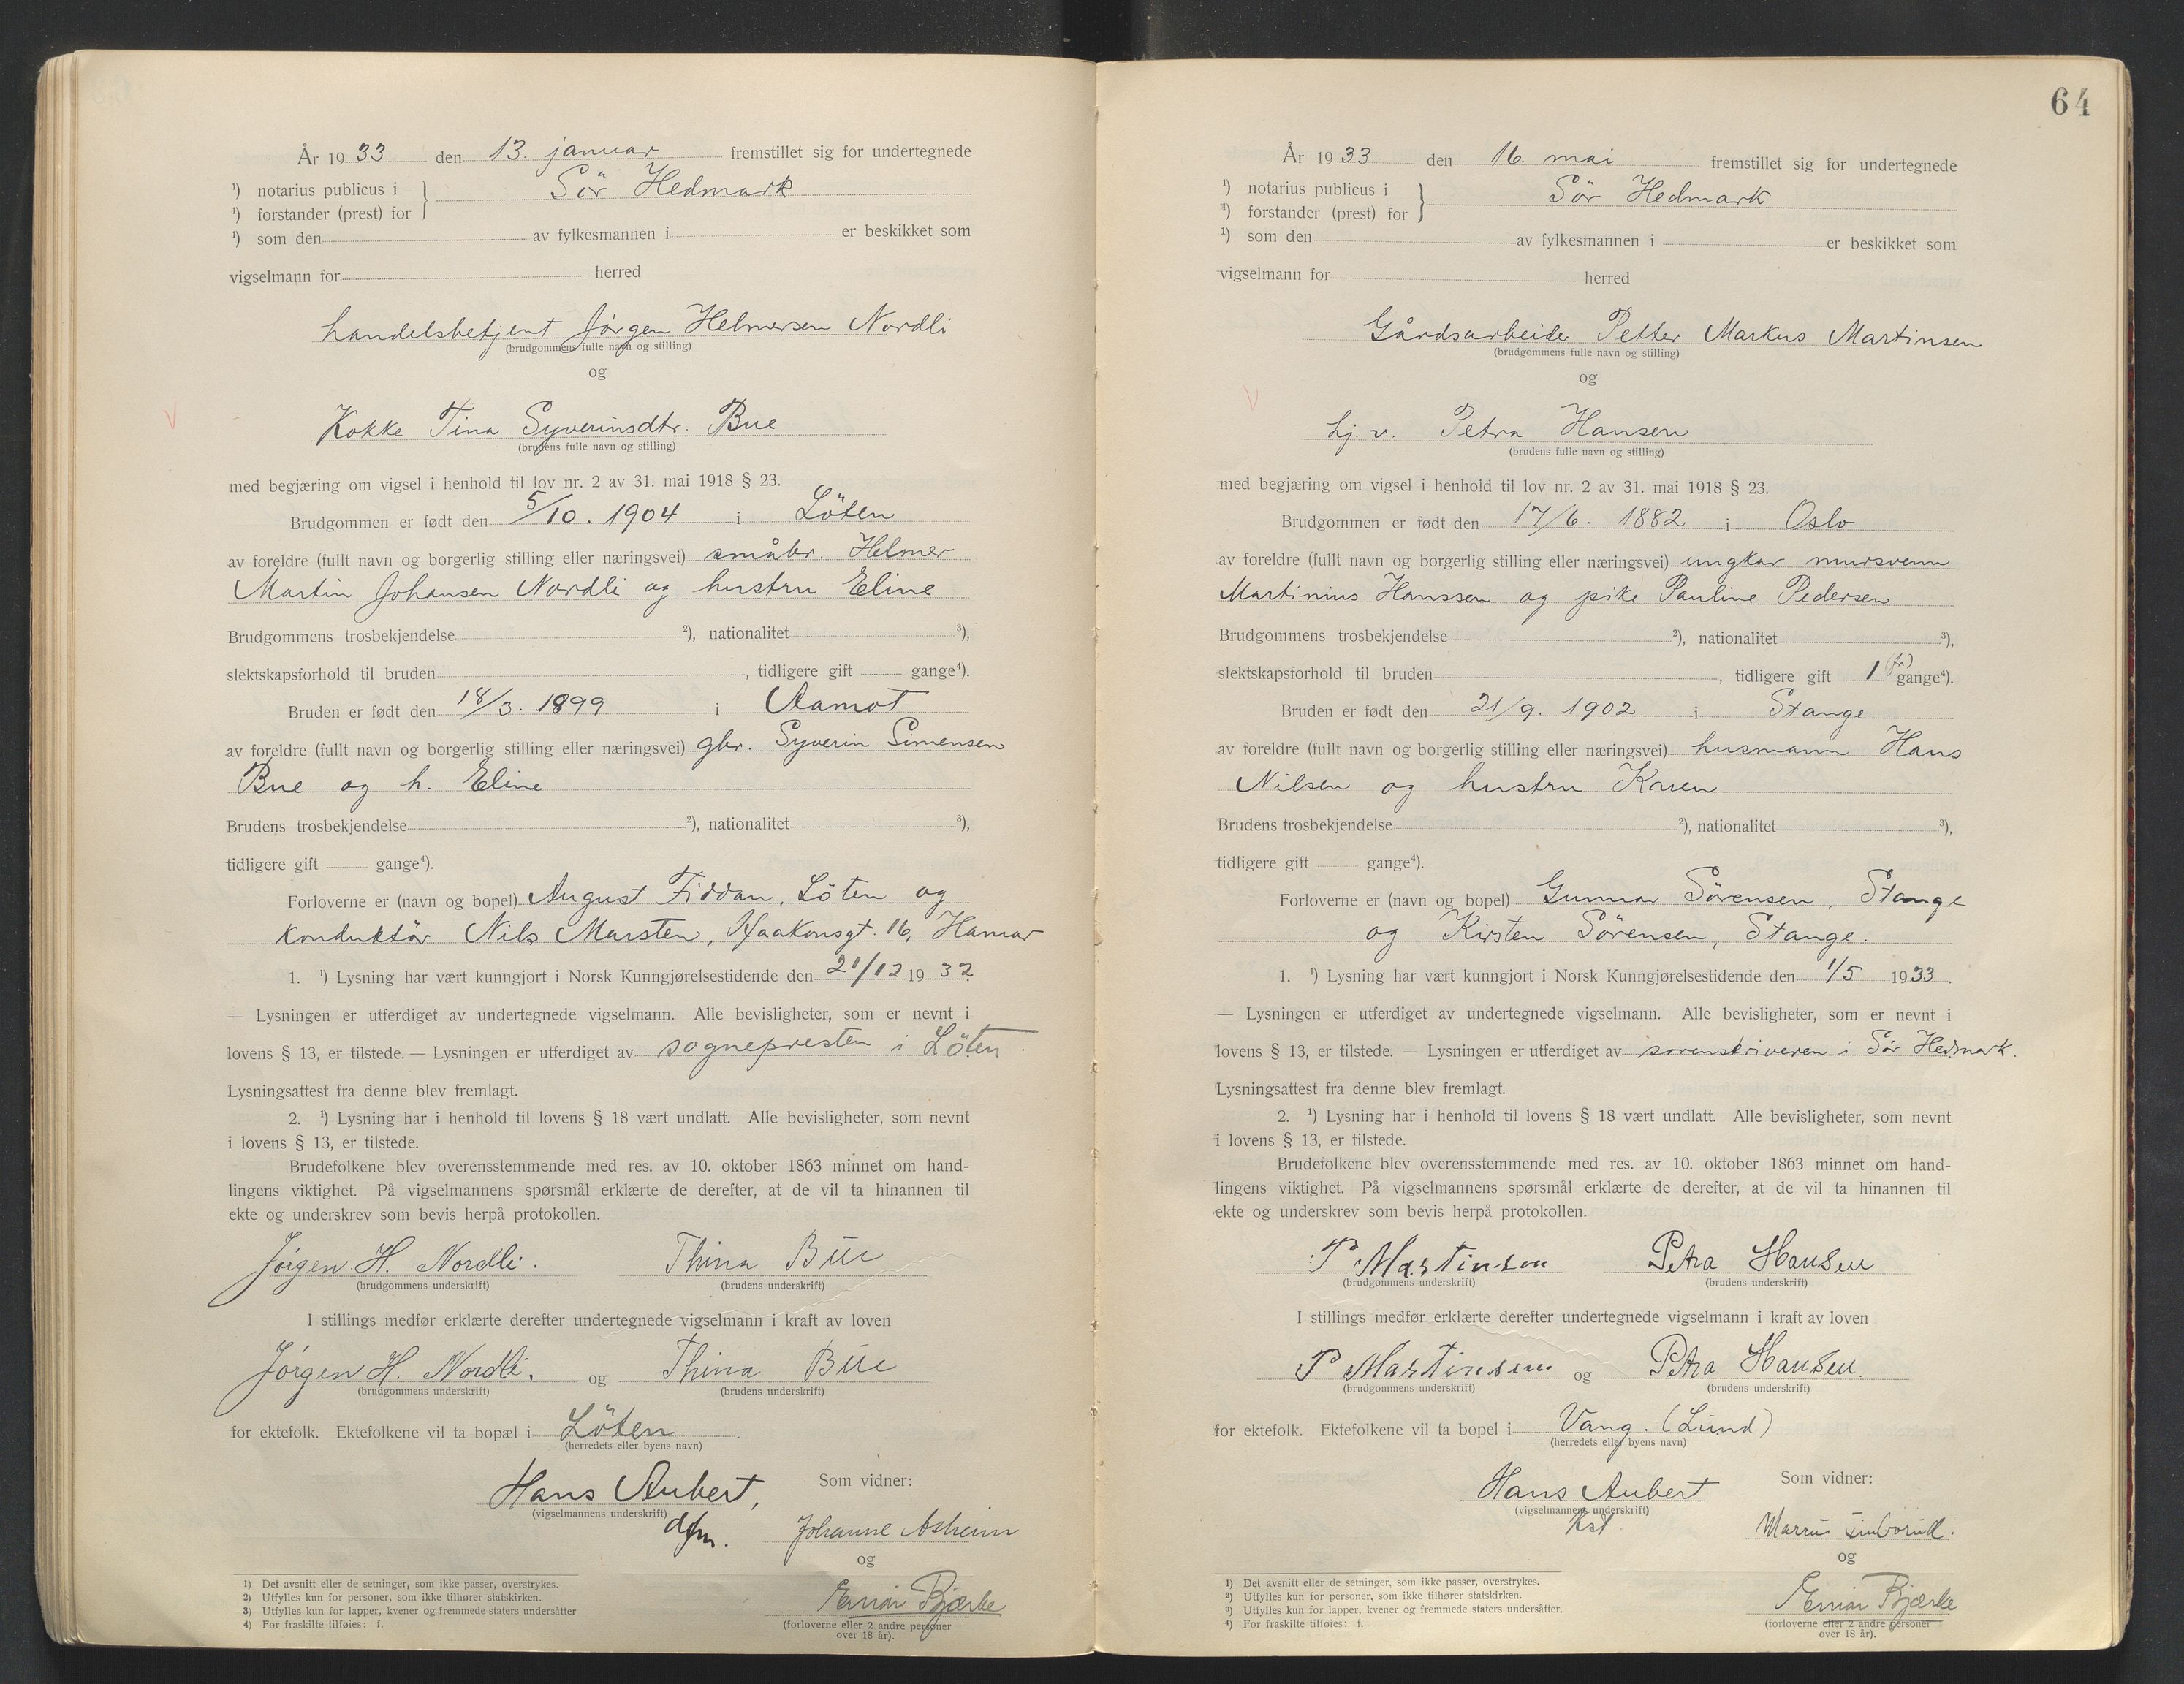 År 1933 den 13. januar fremstillet sig for undertegnede
¹) notarius publicus i } Sör Hedmark
¹) forstander (prest) for
¹) som den av fylkesmannen i er beskikket som
vigselmann for herred
handelsbetjent Jörgen Helmersen Nordli
(brudgommens fulle navn og stilling)
og
Kokke Tina Syverinsdtr. Bue
(brudens fulle navn og stilling)
med begjæring om vigsel i henhold til lov nr. 2 av 31. mai 1918 § 23.
Brudgommen er født den 5/10. 1904 i Löten
av foreldre (fullt navn og borgerlig stilling eller næringsvei) småbr. Helmer
Martin Johansen Nordli og hustru Eline
Brudgommens trosbekjendelse ²), nationalitet ³),
slektskapsforhold til bruden , tidligere gift gange⁴).
Bruden er født den 18/3. 1899 i Aamot
av foreldre (fullt navn og borgerlig stilling eller næringsvei) gbr. Syverin Simensen
Bue og h. Eline
Brudens trosbekjendelse ²), nationalitet ³),
tidligere gift gange⁴).
Forloverne er (navn og bopel) August Fiddan, Löten og
konduktör Nils Marsten, Haakonsgt. 16, Hamar
1. ¹) Lysning har vært kunngjort i Norsk Kunngjørelsestidende den 21/12 1932
— Lysningen er utferdiget av undertegnede vigselmann. Alle bevisligheter, som er nevnt i
lovens § 13, er tilstede. — Lysningen er utferdiget av sognepresten i Löten.
Lysningsattest fra denne blev fremlagt.
2. ¹) Lysning har i henhold til lovens § 18 vært undlatt. Alle bevisligheter, som nevnt
i lovens § 13, er tilstede.
Brudefolkene blev overensstemmende med res. av 10. oktober 1863 minnet om hand-
lingens viktighet. På vigselmannens spørsmål erklærte de derefter, at de vil ta hinannen til
ekte og underskrev som bevis herpå protokollen.
Jörgen H. Nordli. Thina Bue
(brudgommens underskrift) (brudens underskrift)
I stillings medfør erklærte derefter undertegnede vigselmann i kraft av loven
Jörgen H. Nordli. og Thina Bue
(brudgommens underskrift) (brudens underskrift)
for ektefolk. Ektefolkene vil ta bopæl i Löten.
(herredets eller byens navn)
Hans Aubert, Som vidner:
(vigselmannens underskrift)
dfm. Johanne Asheim
og
Einar Bjærke
(forloverne eller 2 andre personer
over 18 år).
1) Det avsnitt eller de setninger, som ikke passer, overstrykes.
2) Utfylles kun for personer, som ikke tilhører statskirken.
3) Utfylles kun for lapper, kvener og fremmede staters undersåtter
4) For fraskilte tilføies: f.
64
År 1933 den 16. mai fremstillet sig for undertegnede
¹) notarius publicus i } Sör Hedmark
¹) forstander (prest) for
¹) som den av fylkesmannen i er beskikket som
vigselmann for herred
Gårdsarbeide Petter Markus Martinsen
(brudgommens fulle navn og stilling)
og
hj. v. Petra Hansen
(brudens fulle navn og stilling)
med begjæring om vigsel i henhold til lov nr. 2 av 31. mai 1918 § 23.
Brudgommen er født den 17/6. 1882 i Oslo
av foreldre (fullt navn og borgerlig stilling eller næringsvei) ungkar mursvenn
Martinius Hanssen og pike Pauline Pedersen
Brudgommens trosbekjendelse ²), nationalitet ³),
slektskapsforhold til bruden , tidligere gift 1 (f.) gange⁴).
Bruden er født den 21/9. 1902 i Stange
av foreldre (fullt navn og borgerlig stilling eller næringsvei) husmann Hans
Nilsen og hustru Karen
Brudens trosbekjendelse ²), nationalitet ³),
tidligere gift gange⁴).
Forloverne er (navn og bopel) Gunnar Sörensen, Stange
og Kirsten Sörensen, Stange.
1. ¹) Lysning har vært kunngjort i Norsk Kunngjørelsestidende den 1/5 1933.
— Lysningen er utferdiget av undertegnede vigselmann. Alle bevisligheter, som er nevnt i
lovens § 13, er tilstede. — Lysningen er utferdiget av sorenskriveren i Sör Hedmark.
Lysningsattest fra denne blev fremlagt.
2. ¹) Lysning har i henhold til lovens § 18 vært undlatt. Alle bevisligheter, som nevnt
i lovens § 13, er tilstede.
Brudefolkene blev overensstemmende med res. av 10. oktober 1863 minnet om hand-
lingens viktighet. På vigselmannens spørsmål erklærte de derefter, at de vil ta hinannen til
ekte og underskrev som bevis herpå protokollen.
P Martinsen Petra Hansen
(brudgommens underskrift) (brudens underskrift)
I stillings medfør erklærte derefter undertegnede vigselmann i kraft av loven
P Martinsen og Petra Hansen.
(brudgommens underskrift) (brudens underskrift)
for ektefolk. Ektefolkene vil ta bopel i Vang. (Lund)
(herredets eller byens navn)
Hans Aubert Som vidner:
(vigselmannens underskrift)
og
Einar Bjærke
(forloverne eller 2 andre personer
over 18 år).
1) Det avsnitt eller de setninger, som ikke passer, overstrykes.
2) Utfylles kun for personer, som ikke tilhører statskirken.
3) Utfylles kun for lapper, kvener og fremmede staters undersåtter.
4) For fraskilte tilføies: f.